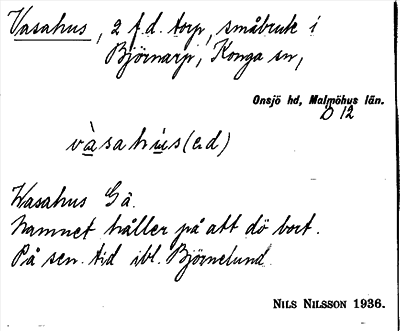 Vasahus, 2 f.d. torp, småbruk i
Björnarp, Konga sn,
Onsjö hd, Malmöhus län.
D 12
và̱sahu̱s(ɛd)
Wasahus Gä.
Namnet håller på att dö bort.
På sen. tid ibl. Björnelund.
NILS NILSSON 1936.